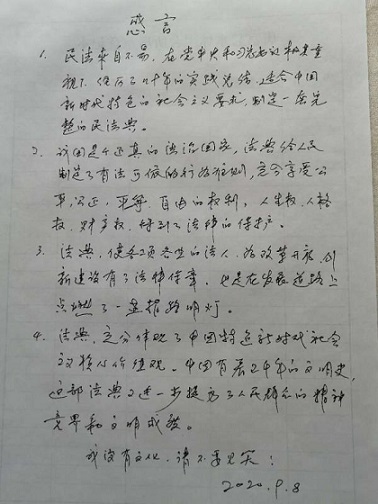 感言
1. 民法来自不易,在党中央和习总书记的极其重
视下,经历了几十年的实践总结,适合中国
新时代特色的社会主义要求,制定一套完
整的民法典。
2. 我国是个近真的法治国家,法典给人民
制定了有法可依的行为准则,充分享受公
平,公正,平等,自由的权利,人生权,人格
权,财产权,得到了法律的保护。
3. 法典,使各项各业的法人,为改革开放创
新建设有了法律保章,也是在发展道路上
点燃了一盏指路明灯。
4. 法典,充分体现了中国特色新时代社会
主义核心价值观。中国有着五千年的文明史,
这部法典又进一步提高了人民群众的精神
境界和文明成度。
我没有文化,请不要见笑!
2020.9.8